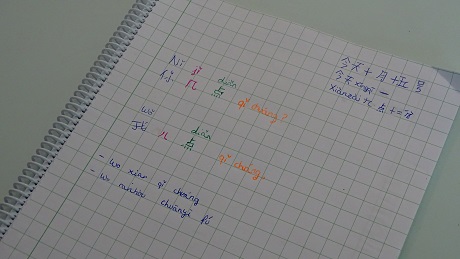 今天十月十五号
今天 xīngqī 一
xiànzài 九点十二分
Nǐ jǐ diǎn
你 几 点 qǐ chuáng?
wǒ diǎn
我 八 点 qǐ chuáng.
- Wo xian qǐ chuáng
- Wo ránhòu chuānyī fú